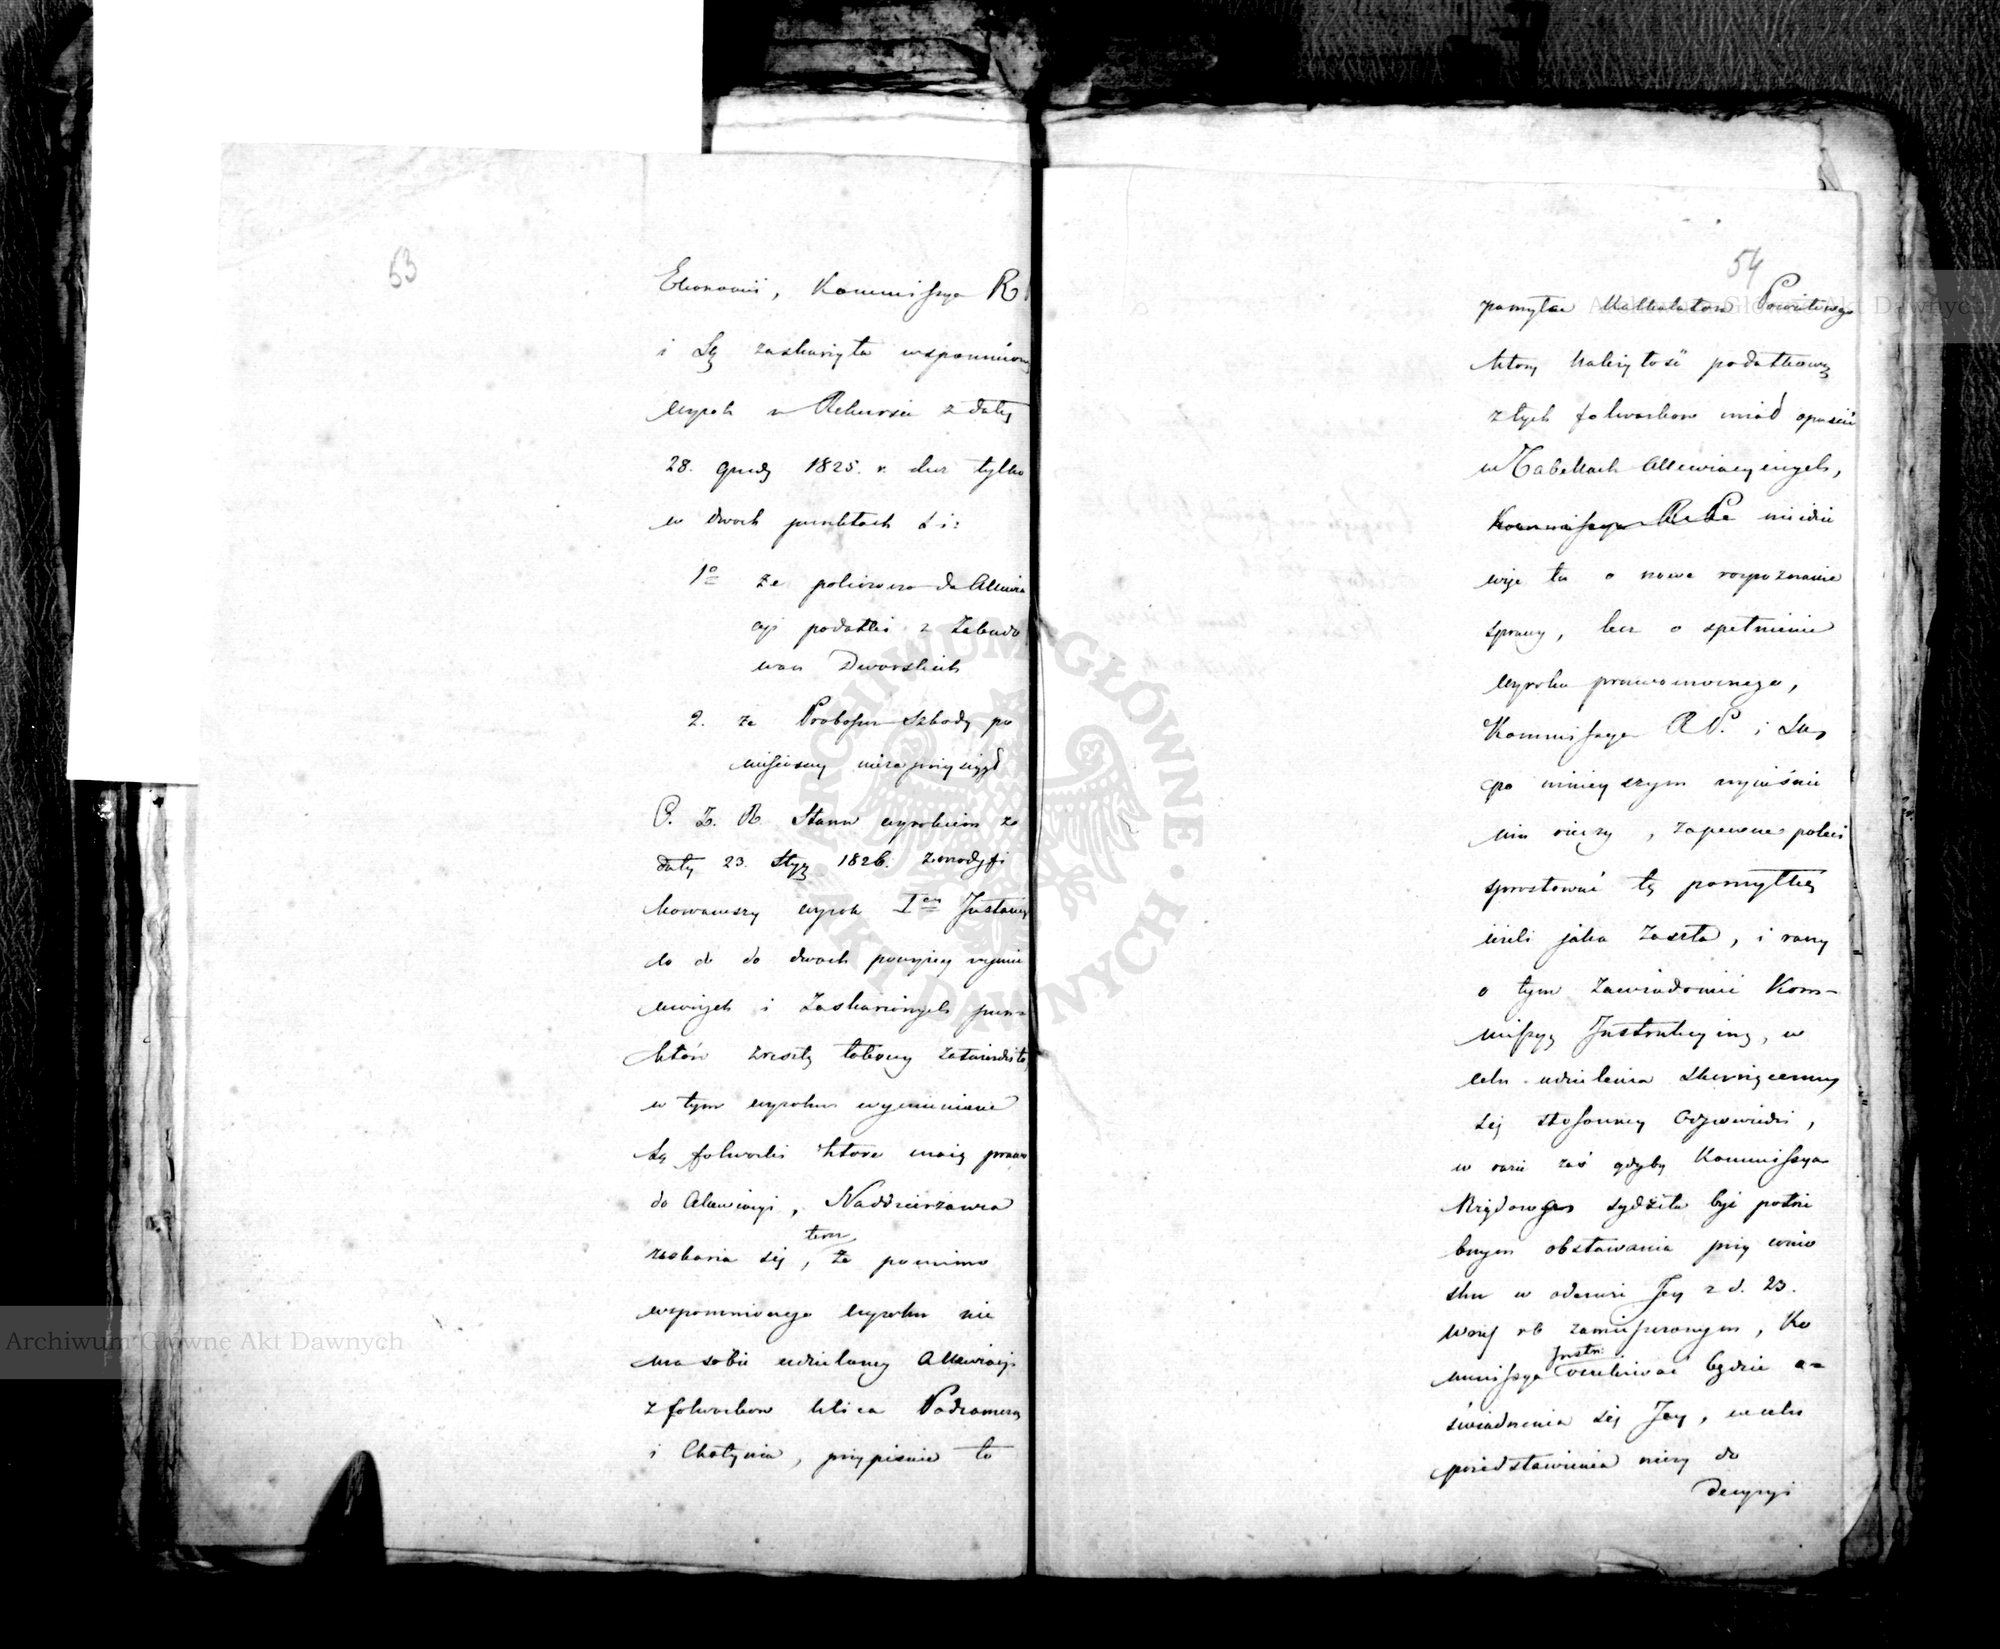 53
Ekonomii, Kommissya R
i Sę zaskarzyła wspomniony
wyrok w Rekursie z daty
28. grudz 1825. r. lecz tylko
w dwóch punktach t i:
1º że policzono do Allewia
cyi podatki z Zabudo
wań Dworskich
2. że Proboszcz Szkody po
niesioney nieza przysiągł
P. Z. R. Stanu wyrokiem z
daty 23. Stycz 1826. zmodyfi
kowawszy wyrok I en Instancyi
co do dwóch powyżey wymie
nionych i Zaskarżonych pun=
któw zresztą takowy zatwierdziła,
w tym wyroku wymienione
Są folwarki które maią prawo
do Alewiacyi, Naddzierżawca
uskarża się tem, że pomimo
wspomnionego wyroku nie
ma sobie udzieloney Allewiacyi
z folwarków Podzamcza
i Chotynia, przypisuie to
54
pomyłce Kalkulatora Powiatowego
który należytość podatkową
z tych folwarków miał opuścić
w Tabellach Allewiacyinych,
Kommissya R P nie idzie
więc tu o nowe rozpoznanie
sprawy, lecz o spełnienie
wyroku prawomocnego,
Kommissya R P. i Sk,
po ninieyszym wyiaśnie
niu rzeczy, zapewne poleci
sprostować tę pomyłkę
ieżeli jaka zaszła, i raczy
o tym zawiadomić Kom=
missyą Instrukcyiną, w
celu udzielenia skarżącemu
się stosowney Odpowiedzi,
w razie zaś gdyby Kommissya
Rządowa sądziła być potrze
bnym obstawania przy wnio
sku w odezwie Jey z d. 23.
Wrześ rb zamieszczonym, Ko
mmissya Instr: oczekiwać będzie o=
świadczenia się Jey, w celu
przedstawienia rzeczy do
Decyzyi
Archiwum Główne Akt Dawnych
Archiwum Główne Akt Dawnych
ARCHIWUM GŁÓWNE AKT DAWNYCH